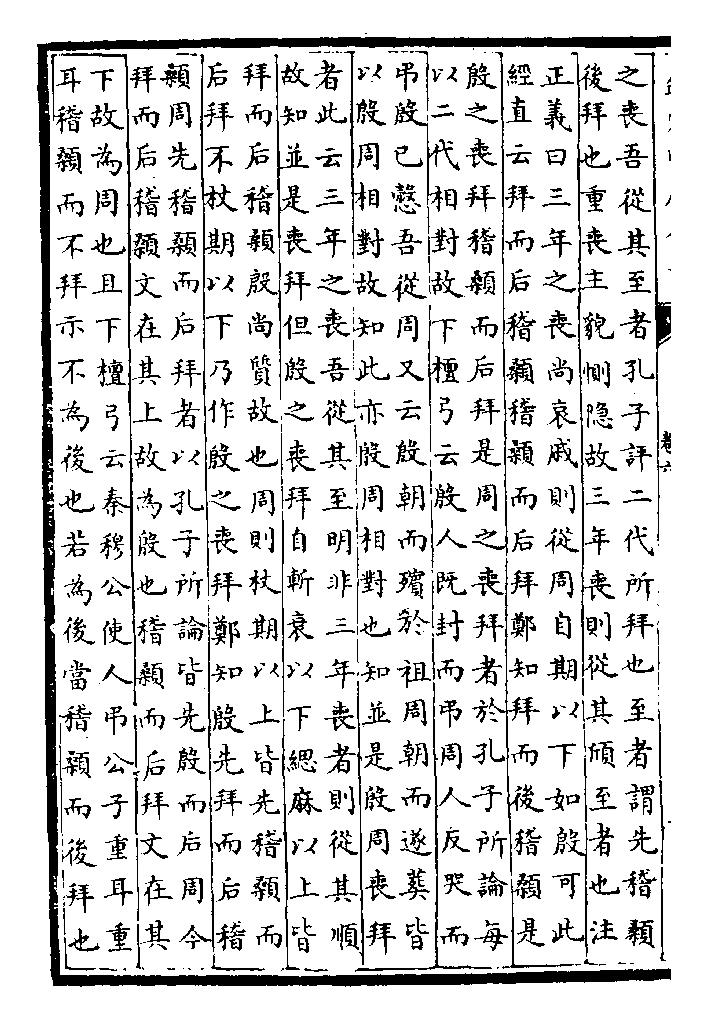 之喪吾從其至者孔子評二代所拜也至者謂先稽顙
後拜也重喪主貌惻隐故三年喪則從其頎至者也注
正義曰三年之喪尚哀戚則從周自期以下如殷可此
經直云拜而后稽顙稽顙而后拜鄭知拜而後稽顙是
殷之喪拜稽顙而后拜是周之喪拜者於孔子所論每
以二代相對故下檀弓云殷人既封而吊周人反哭而
吊殷已慤吾從周又云殷朝而殯於祖周朝而遂葬皆
以殷周相對故知此亦殷周相對也知並是殷周喪拜
者此云三年之喪吾從其至明非三年喪者則從其順
故知並是喪拜但殷之喪拜自斬衰以下緦麻以上皆
拜而后稽顙殷尚質故也周則杖期以上皆先稽顙而
后拜不杖期以下乃作殷之喪拜鄭知殷先拜而后稽
顙周先稽顙而后拜者以孔子所論皆先殷而后周今
拜而后稽顙文在其上故為殷也稽顙而后拜文在其
下故為周也且下檀弓云秦穆公使人吊公子重耳重
耳稽顙而不拜示不為後也若為後當稽顙而後拜也